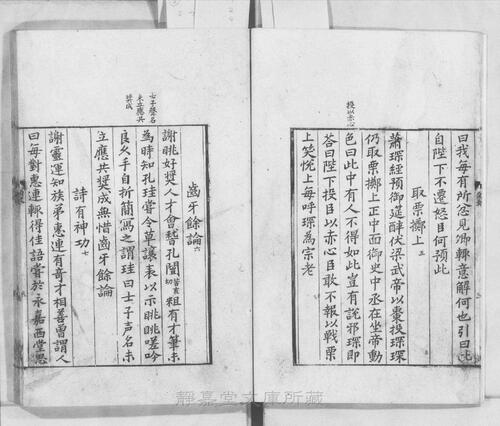 投以赤心
曰我每有所忿見卿輙意解何也引曰此
自陛下不遷怒臣何預此
取栗擲上三
蕭琛經預御筵醉伏梁武帝以棗投琛琛
仍取栗擲上正中面御史中丞在坐帝動
色曰此中有人不得如此豈有說邪琛即
荅曰陛下投臣以赤心臣敢不報以戰栗
上笑悅上每呼琛為宗老
士子聲名
未立應共
奬成
齒牙餘論六
謝朓好奬人才會稽孔闓粗有才筆未
為時知孔珪嘗令草讓表以示朓朓嗟吟
良久手自折簡寫之謂珪曰士子声名未
立應共奬成無惜齒牙餘論
詩有神功七
謝靈運知族弟惠連有奇才相善曽謂人
曰每對惠連輙得佳語嘗於永嘉西堂思
靜嘉堂文庫所藏